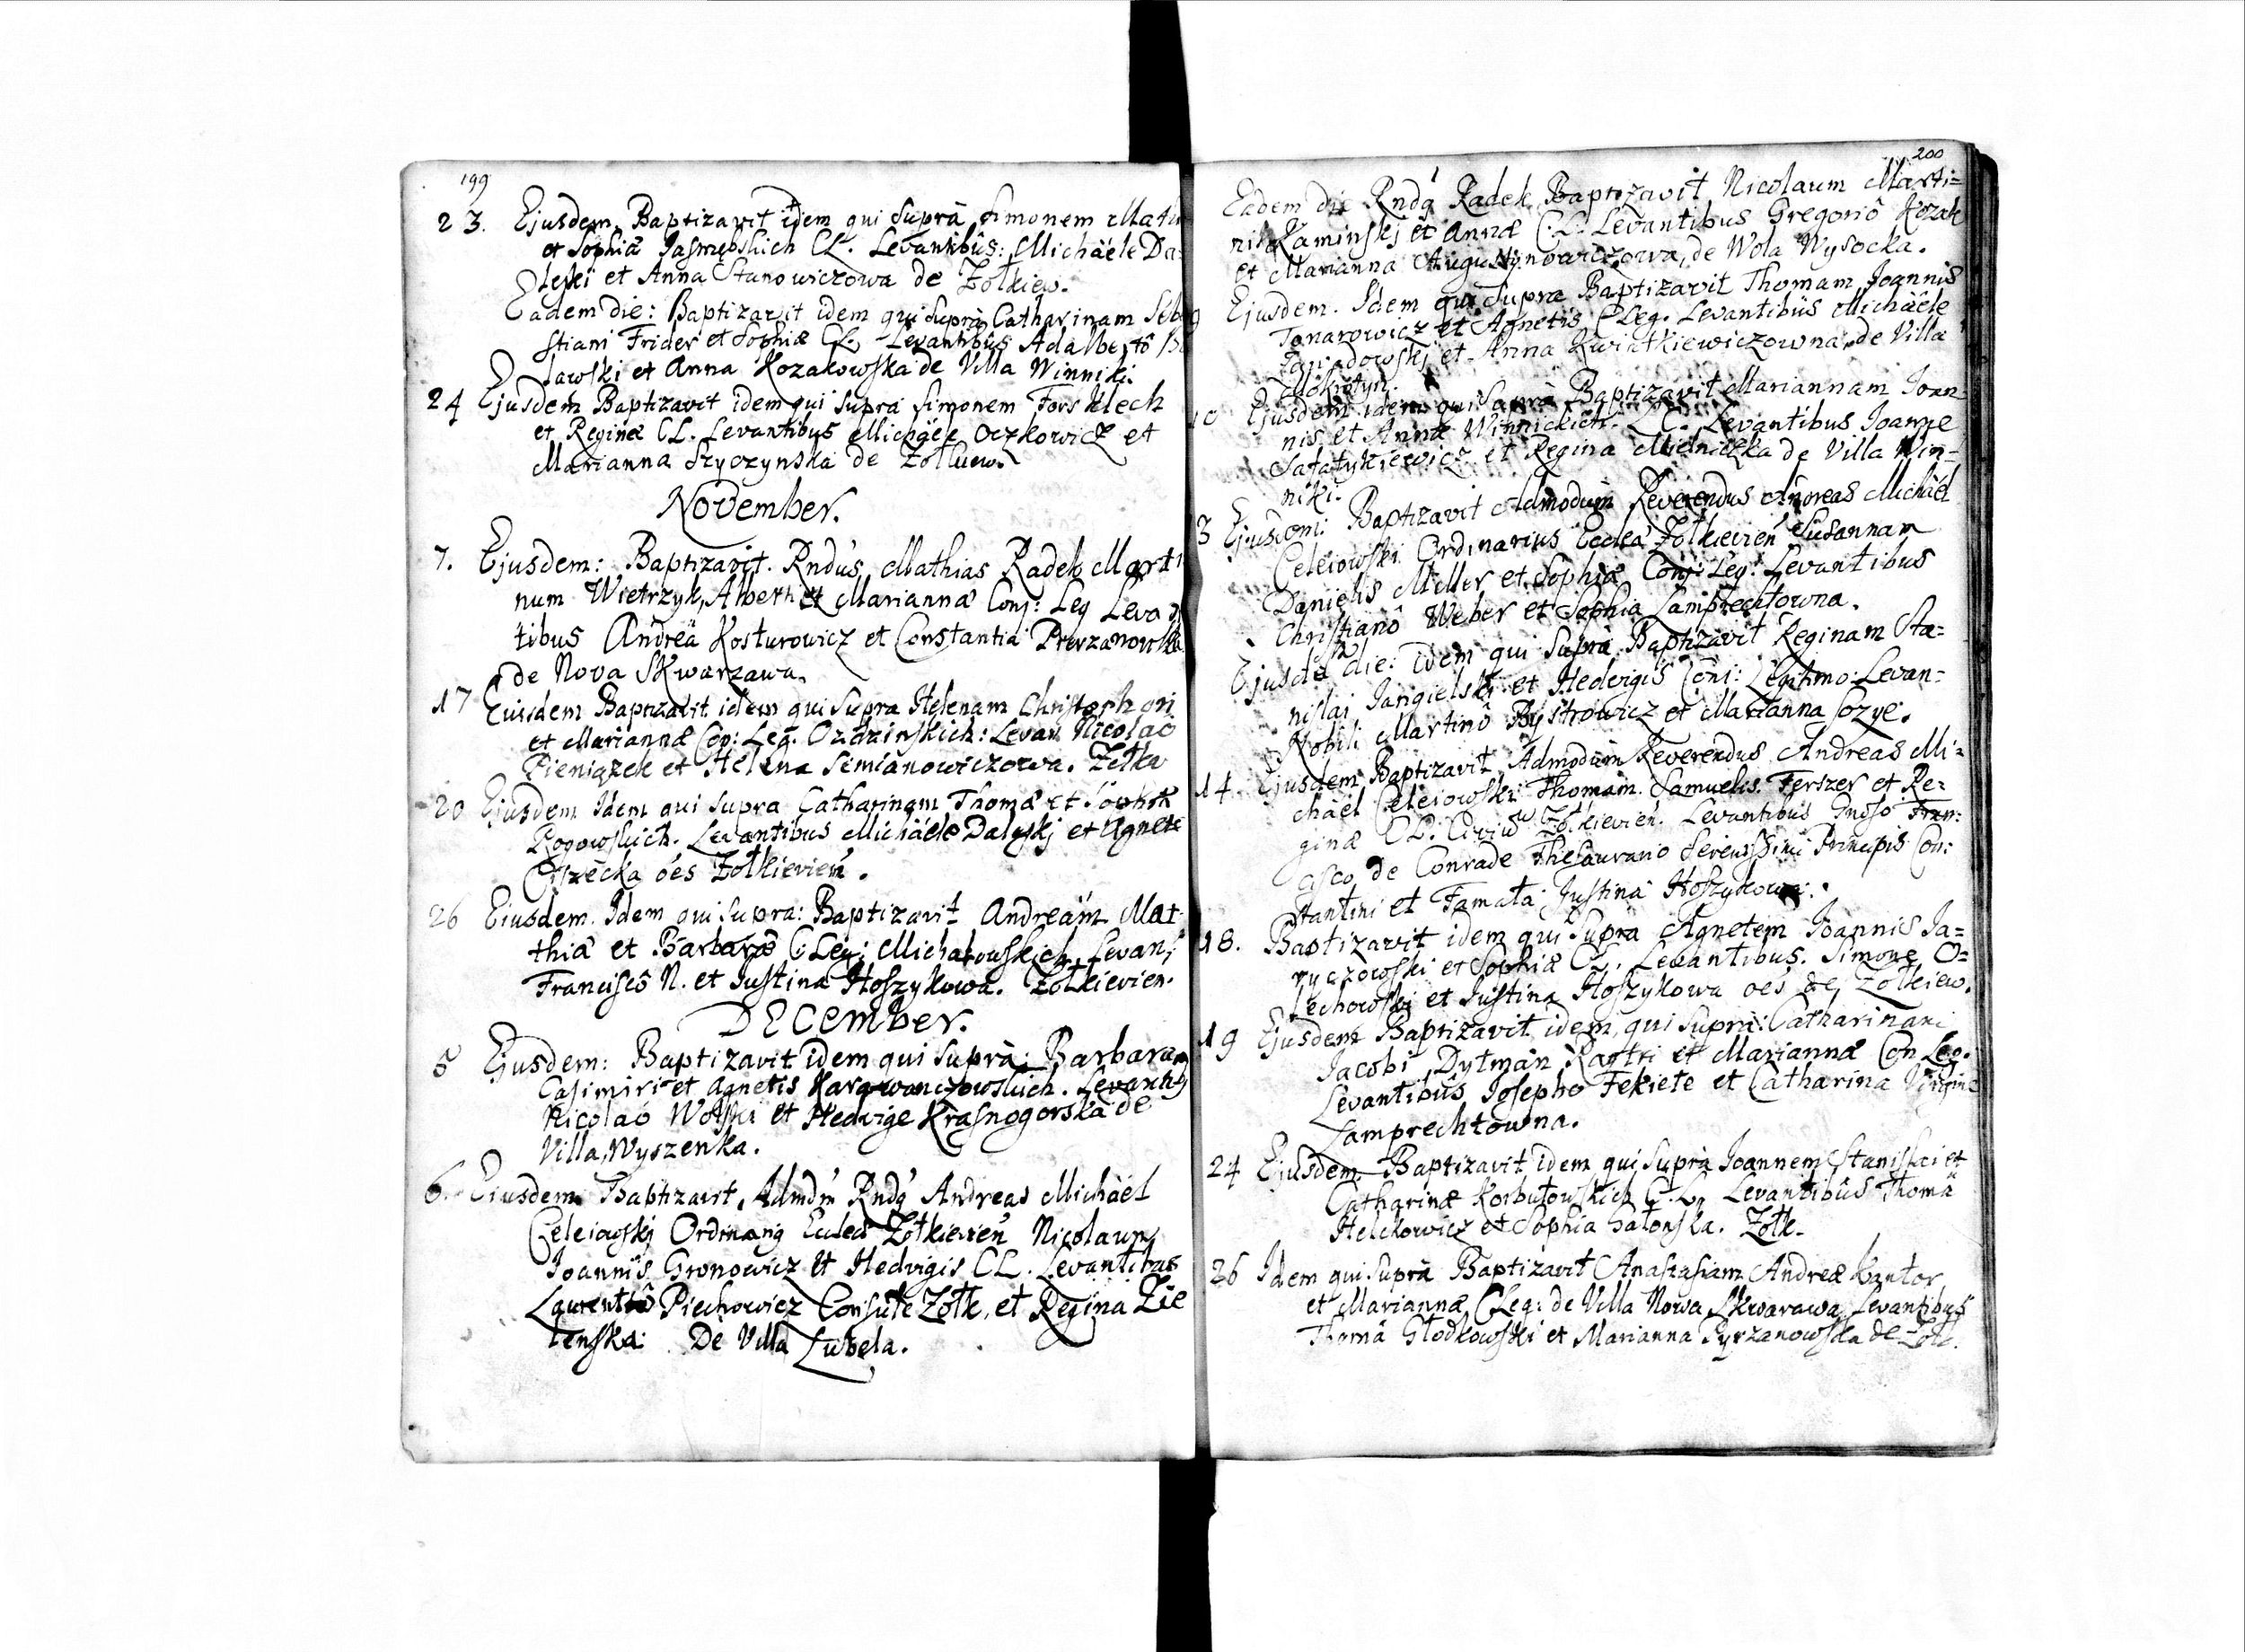 199
23. Ejusdem Baptizavit idem qui Suprà Simonem
et Sophiæ Jastrębskich CL. Levantibûs: Michaële Da=
leski et Anna Stanowiczowa de Zołkiew.
Eadem die: Baptizavit idem qui Suprà Catharinam Seba
stiani Frider et Sophiæ CL. Levantibûs Adalbertô
sawski et Anna Kozakowska de Villa Winniki.
24 Ejusdem Baptizavit idem qui Supra Simonem Forsklech
et Reginæ CL. Levantibus Michaële Oczkowicz et
Marianna Szyczynska de Zołkiew.
November.
7. Ejusdem: Baptizavit. Rndûs Mathias Radek Marti
num Wietrzyk, Alberti et Mariannæ Conj: Leg Levan
tibus Andreä Kosturowicz et Constantia
de Nova Skwarzawa.
17 Eiusdem Baptizavit idem qui Supra Helenam Christophori
et Mariannæ Con: Leg. Ozdzinskich: Levan Nicolaô
Pieniązek et Helena Simianowiczowa. Zołka
20 Ejusdem Idem qui Supra Catharinam Thomæ et Sophiæ
Rogowskich. Levantibus Michäéle Daleskj et Agnete
óes Zołkievień.
26 Eiusdem. Idem qui Supra: Baptizavit Andreám Mat
thiæ et Barbaræ C: Leg: Michałowskich. Levan;
Franciscô N. et Justina Hoszykowa. Zołkievien.
DECember.
5 Ejusdem: Baptizavit idem qui suprà: Barbaram
Casimiri et Agnetis Karawanczowskich. Levantib9
Nicolaó Wolski et Hedvige Krasnogorska de
Villa Wyszenka.
6. Eiusdem Baptizavit, Admdm Rnd9 Andreas Michäél
Celeiowskj Ordinari9 Eccles Zołkievień Nicolaum
Joannis Gronowicz et Hedvigis CL. Levantibus
Laurentiô Piechowicz Consule Zołk. et Regina Zie
lenska: De Villa Lubela.
200
Eadem die Rnd9 Radek Baptizavit Nicolaum Marti=
ni Kaminskj et Annæ C.L. Levantibus Gregoriô Kozak
et Marianna Augustynowiczowa, de Wola Wysocka.
9 Ejusdem. Idem qui Supra Baptizavit Thomam Joannis
Tonarowicz et Agnetis CLeg. Levantibûs Michäéle
et Anna Kwiatkiewiczowna de Villa
Mokrotyn.
10 Ejusdem idem qui Suprà Baptizavit Mariannam Joan=
nis et Annæ Winnickich. LC. Levantibus Joanne
Sałatykiewicz et Regina Mielniczka de Villa Win=
niki.
3 Ejusdem: Baptizavit Admodum Reverendus Andreas Michäél
Celeiowski Ordinarius Eccleæ Zołkievień Susannam
Danielis Miller et Sophiæ Conj: Leg: Levantibus
Christianô Weber et Sophia Lamprechtowna.
Ejusdẽ die: idem qui Supra Baptizavit Reginam Sta=
nislai Jangielski et Hedvigis Coni: Legitimo: Levan=
Nobili Martinô Bystrowicz et Marianna
14. Ejusdem Baptizavit Admodum Reverendus Andreas Mi=
chäél Celeiowski Thomam. Samuelis Ferszer et Re=
ginæ CL. Zołkievień. Levantibus Gnoso Fran:
cisco de Conrade Thesaurario Serenissimi Principis Con:
stantini et Famata Justina Hoszykowa.
18. Baptizavit idem qui Supra Agnetem Joannis Ja=
ryczowski et Sophiæ CL. Levantibus. Simone O=
lechowski et Justina Hoszykowa oes de Zołkiew.
19 Ejusdem Baptizavit idem qui Supra: Catharinam
Jacobi Dytman et Mariannæ Con Leg.
Levantibûs Josepho Fekiete et Catharina Virgine
Lamprechtowna.
24 Ejusdem Baptizavit idem qui Supra Joannem Stanislai et
Catharinæ Korbutowskich C.L. Levantibûs Thomä
Helckowicz et Sophia Satonska. Zołk.
26 Idem qui Suprà Baptizavit Anastasiam Andreæ Kantor
et Mariannæ CLeg: de Villa Nowa Skwarawa Levantibus
Thomä Głodkowski et Marianna Syrzanowska de Zołk.